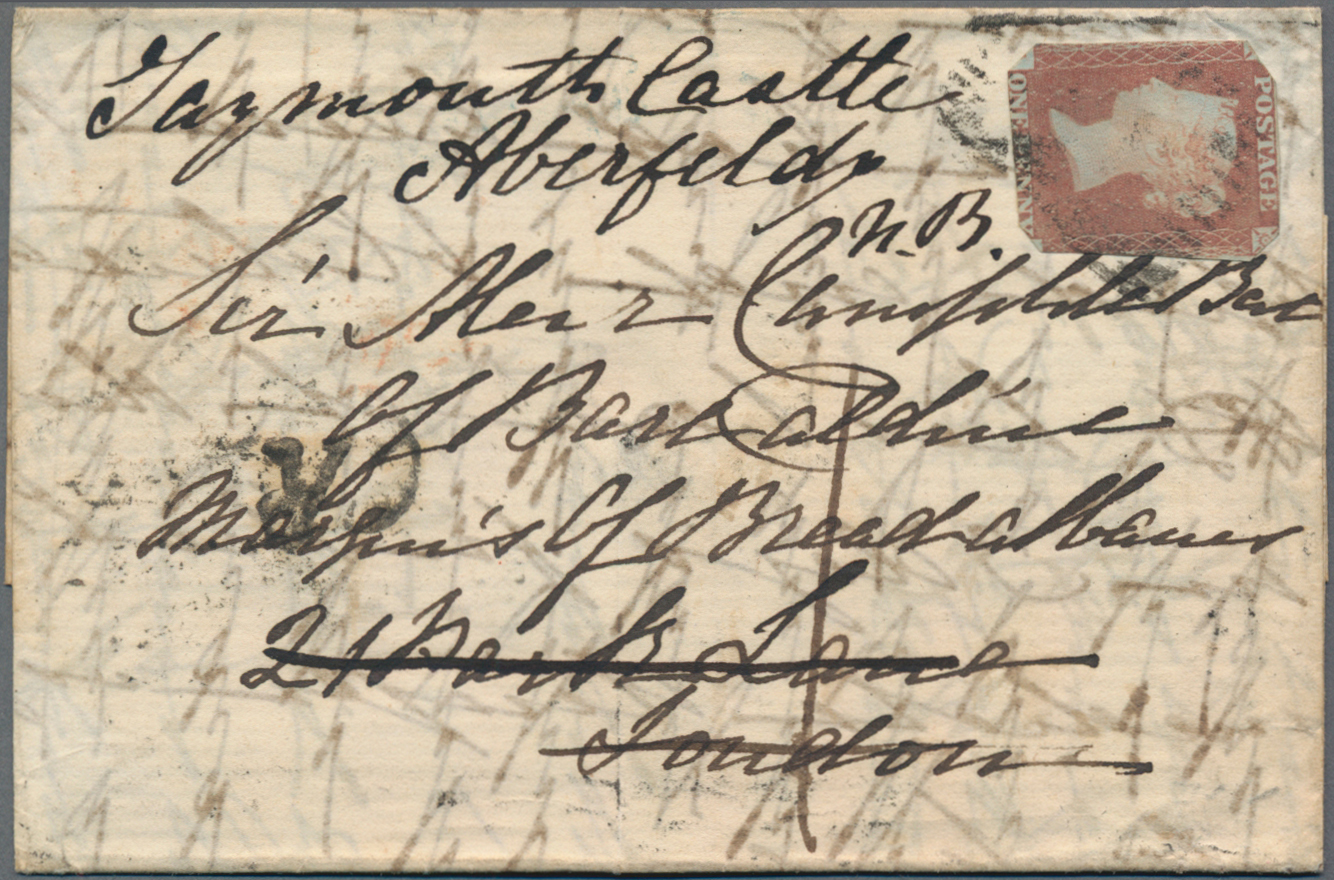 Taymouth Castle
Aberfeldy
N.B.
POSTAGE
ONE PENNY
Sir Alexr Campbell Bart
Of Barcaldine
Marquis Of Breadalbanes
21 Park Lane
London